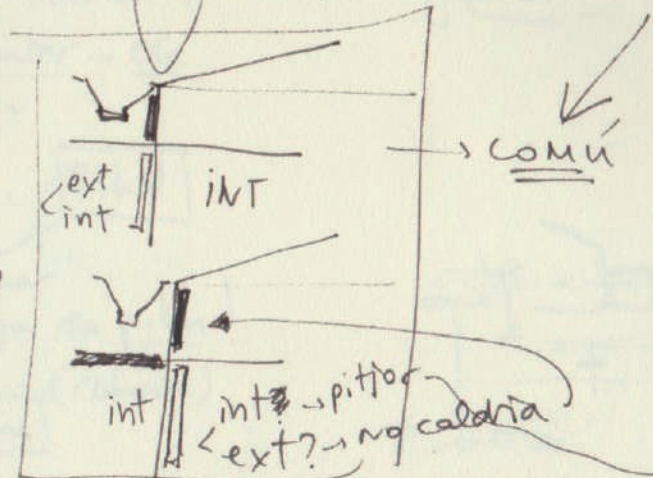 COMÚ
ext
int
INT
int
int → pitjor
ext? → No caldria